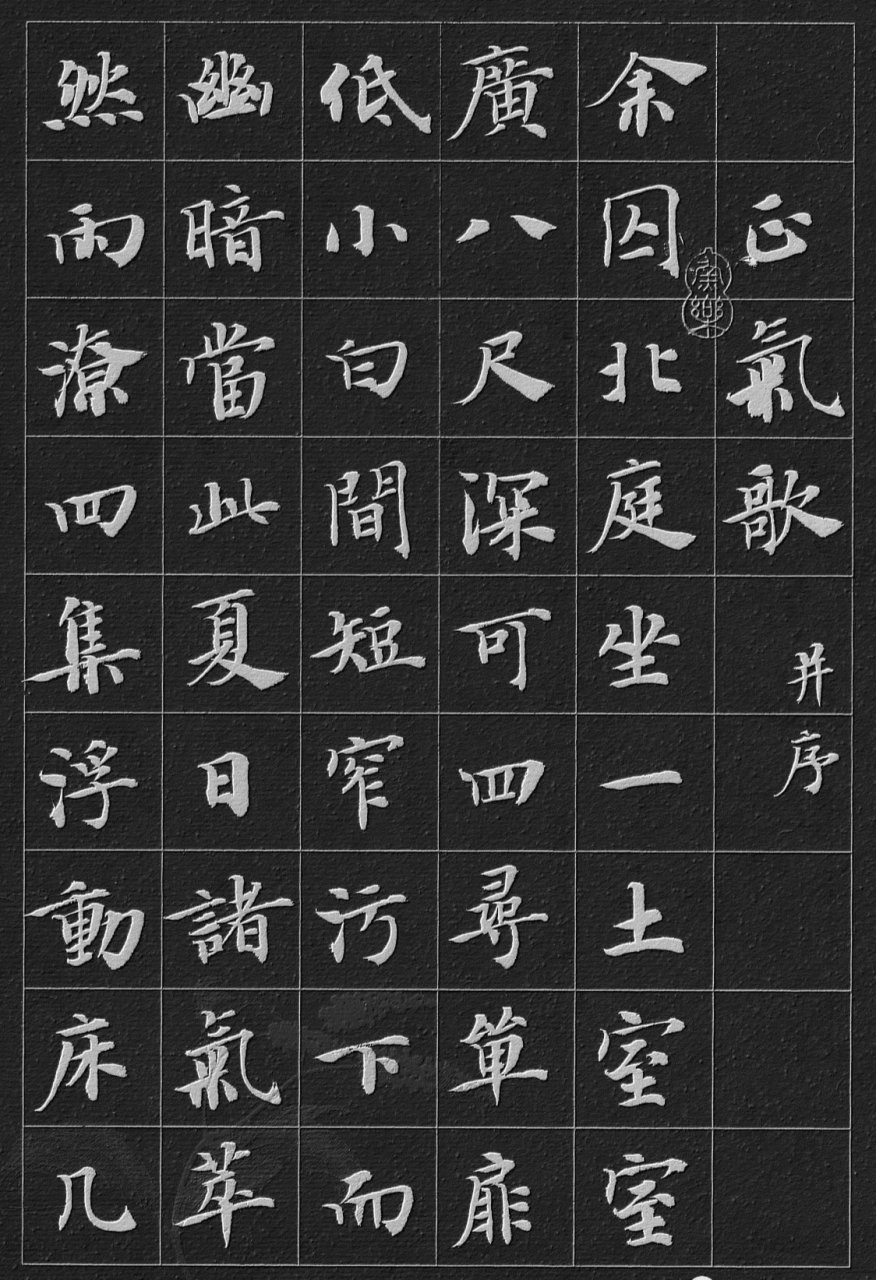 正氣歌 并序
余囚北庭坐一土室室
廣八尺深可四尋單扉
低小白間短窄污下而
幽暗當此夏日諸氣萃
然雨潦四集浮動床几